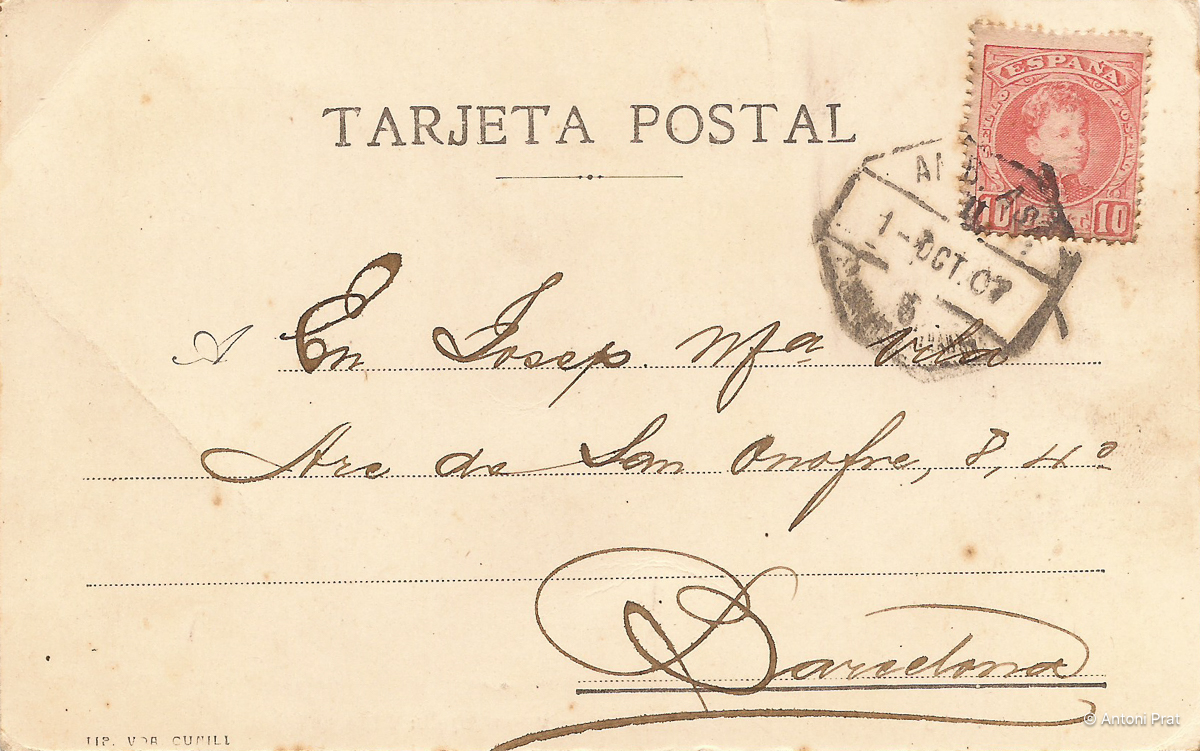 TARJETA POSTAL
ESPAÑA
SELLO POSTAL
10 CT. 10
1-OCT.07
A En Josep Mª Vila
Arc de San Onofre, 8, 4º
Barcelona
TIP. VDA CUNILL
© Antoni Prat